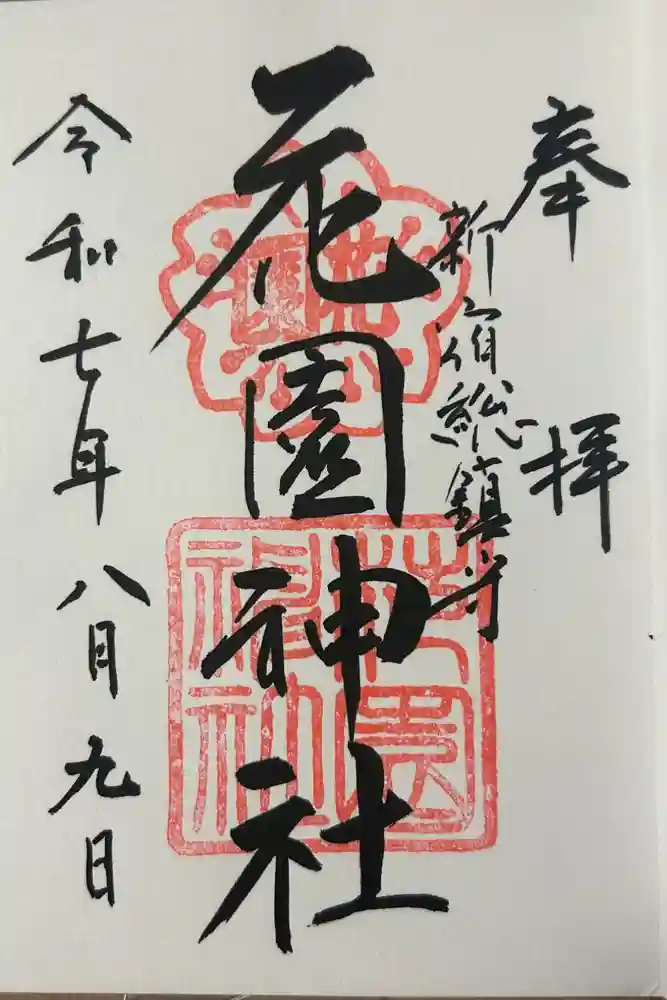 奉拝
新宿総鎮守
花園神社
令和七年八月九日
花園
花園神社